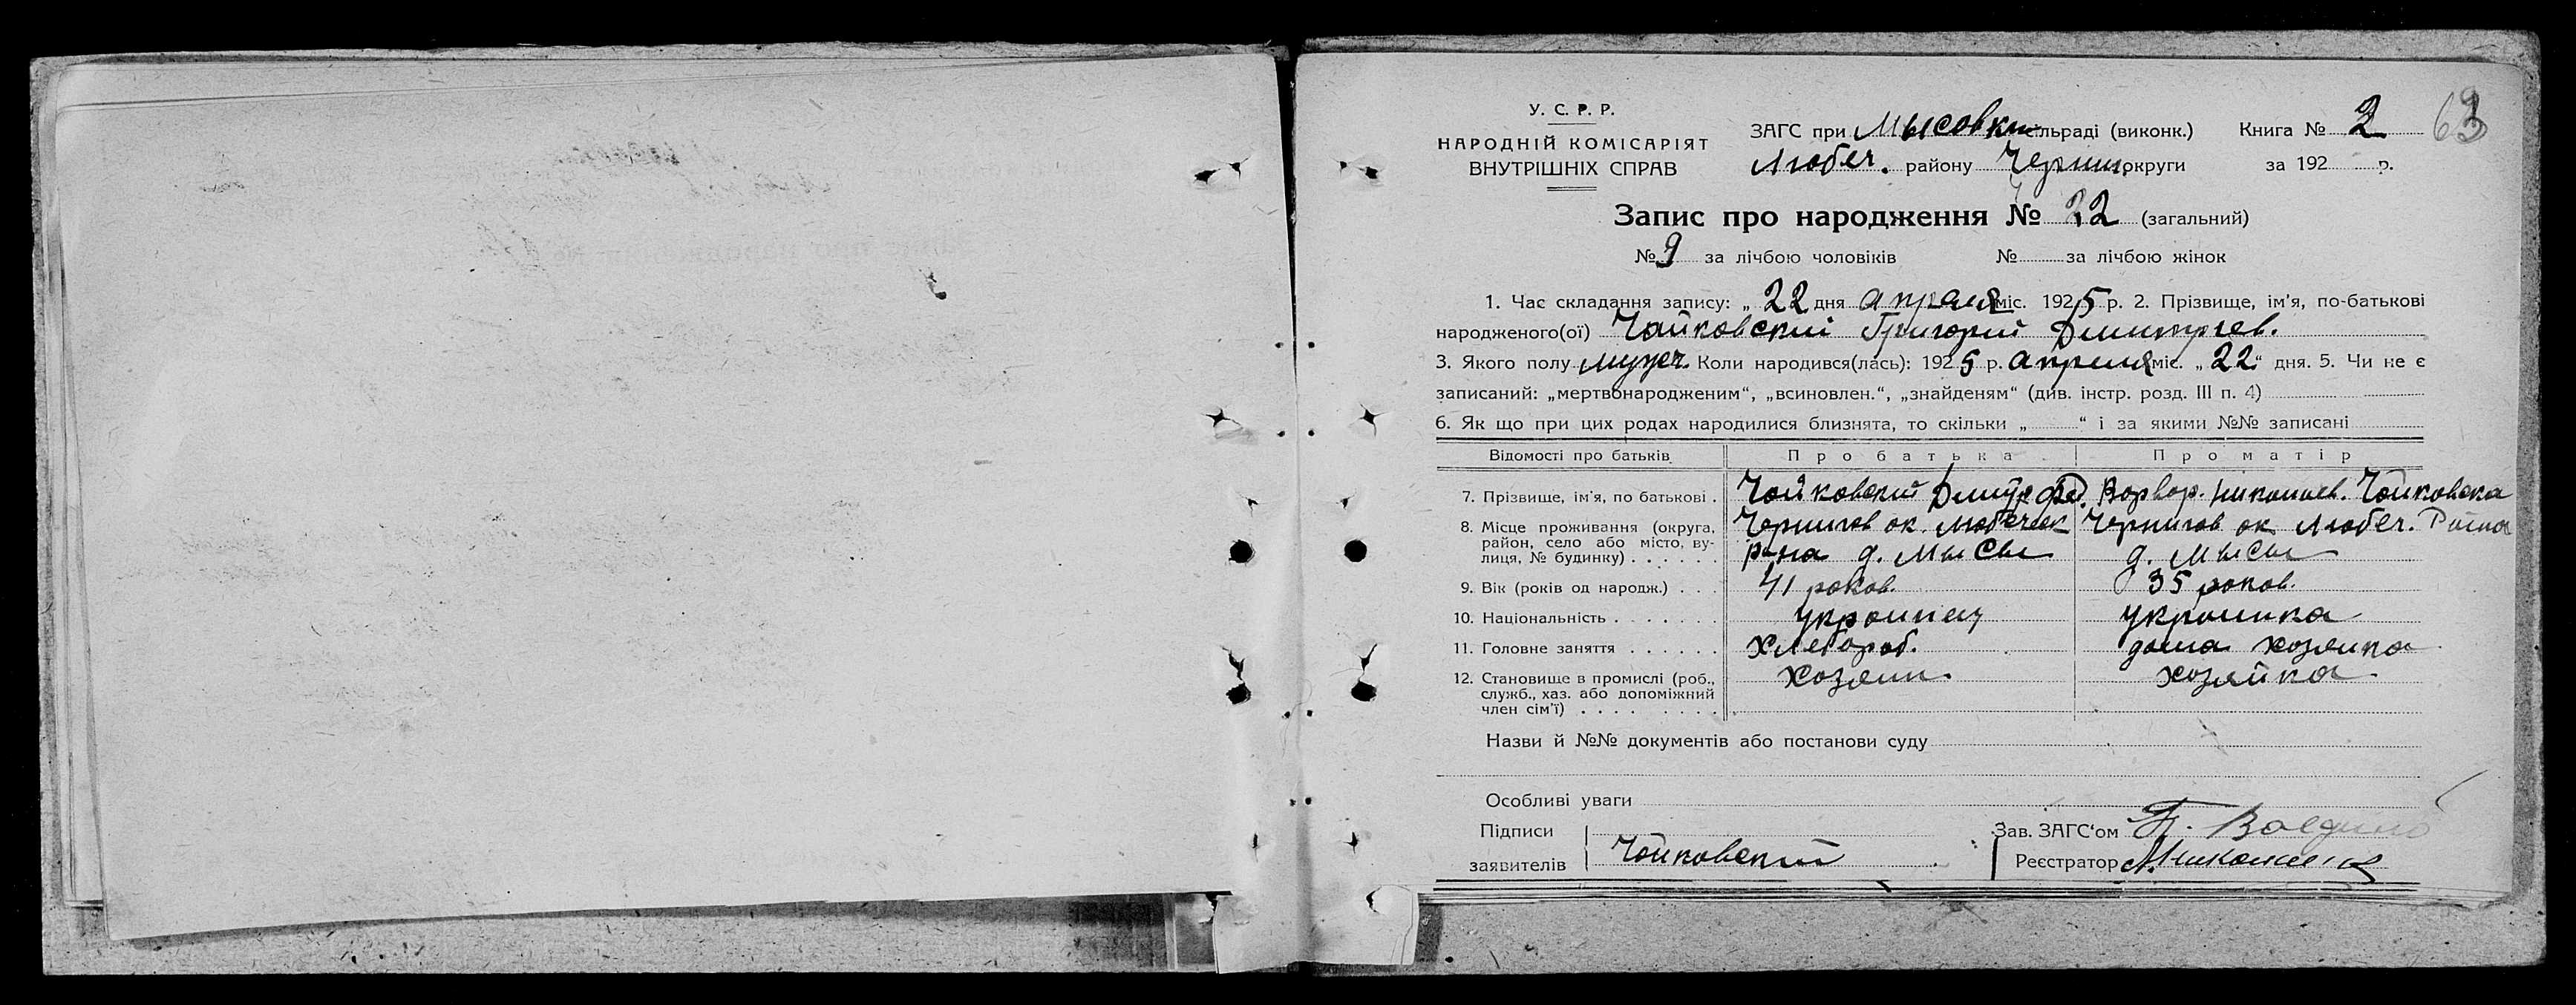 У. С. Р. Р.
НАРОДНІЙ КОМІСАРІЯТ
ВНУТРІШНІХ СПРАВ
ЗАГС при Мысовки сільраді (виконк.) Книга № 2 63
Любеч. району Черниг. округи за 192 р.
Запис про народження № 22 (загальний)
№ 9 за лічбою чоловіків № за лічбою жінок
1. Час складання запису: „ 22 дня апреля міс. 1925 р. 2. Прізвище, ім'я, по-батькові
народженого(ої) Чайковский Григорий Димитриев.
3. Якого полу мужеч. Коли народився(лась): 1925 р. апреля міс. „ 22“ дня. 5. Чи не є
записаний: „мертвонародженим“, „всиновлен.“, „знайденям“ (див. інстр. розд. III п. 4)
6. Як що при цих родах народилися близнята, то скільки „ “ і за якими №№ записані
Відомості про батьків Про батька Про матір
7. Прізвище, ім'я, по батькові . Чайковский Дмитр Фед. Варвар. Николаев. Чайковска
8. Місце проживання (округа, район, село або місто, вулиця, № будинку) Чернигов ок. Любечск Чернигов ок Любеч. Раина
р-на д. Мысы д. Мысы
9. Вік (років од народж.) . . . 41 роков. 35 роков.
10. Національність . . . . . . . украинец украинка
11. Головне заняття . . . . . . Хлебороб. дома хозяика
12. Становище в промислі (роб., служб., хаз. або допоміжний член сім'ї) Хозяин. хозяйка.
Назви й №№ документів або постанови суду
Особливі уваги
Підписи
заявителів Чайковский
Зав. ЗАГС'ом П.
Реєстратор